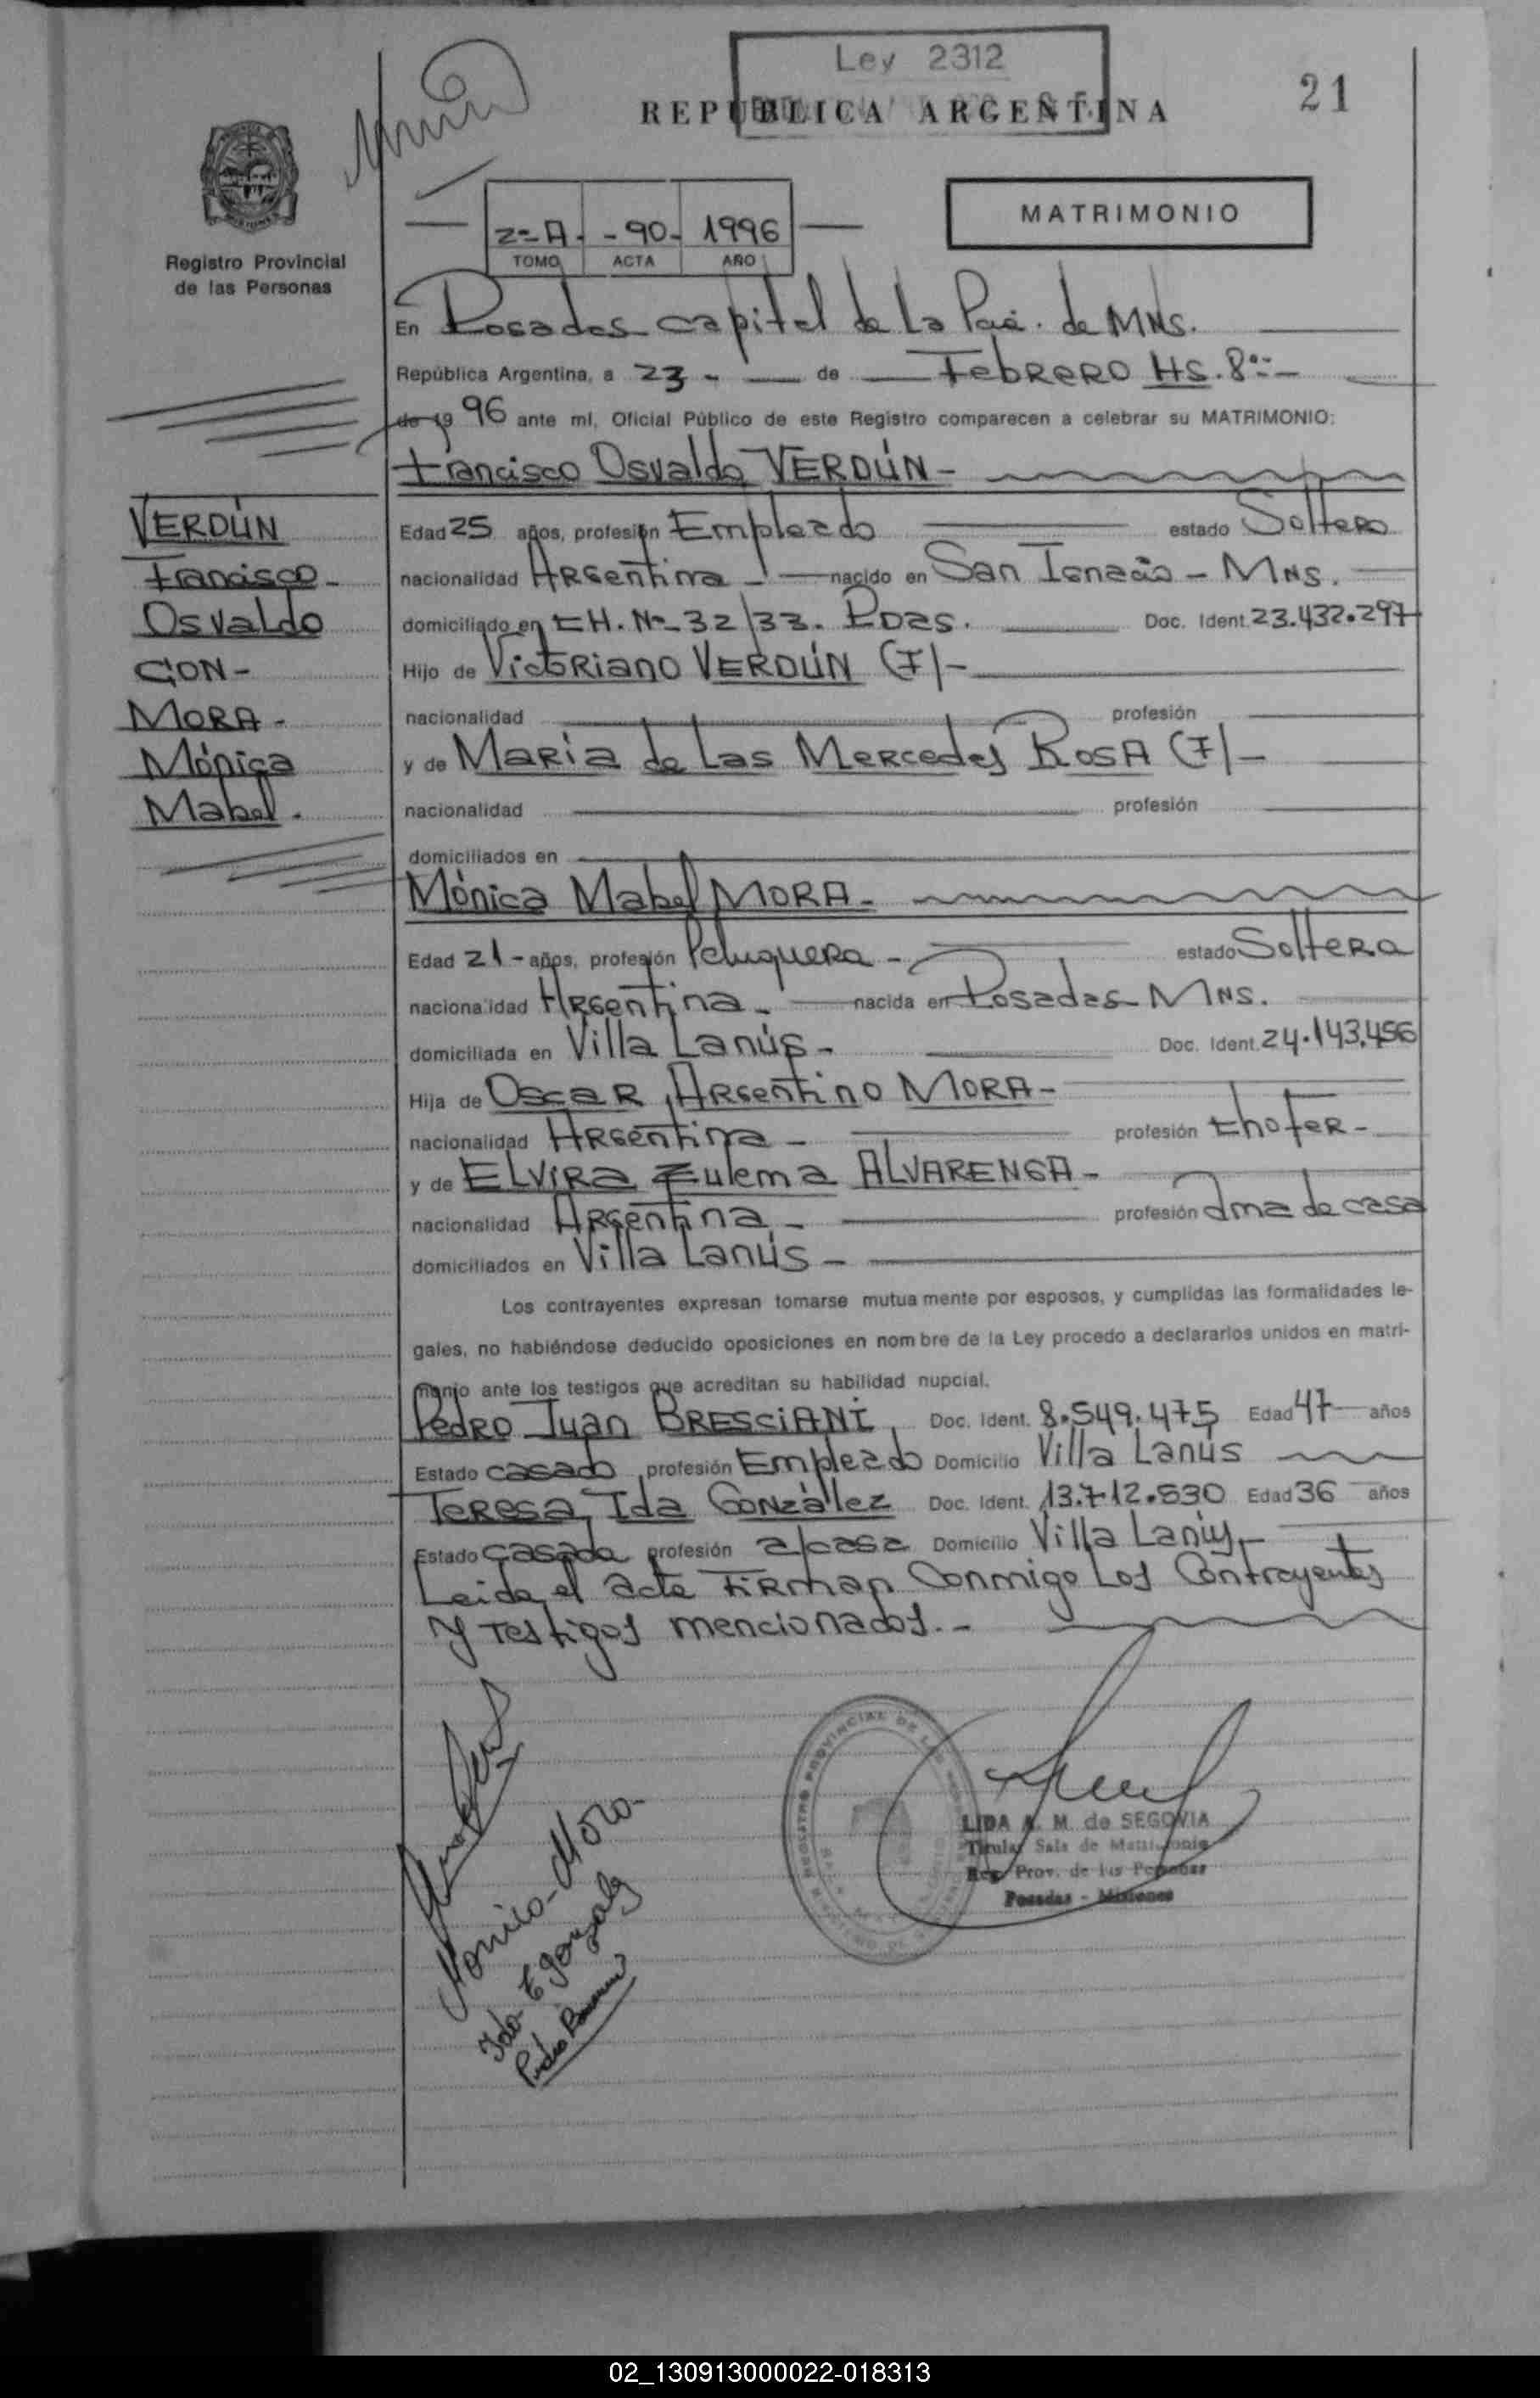 Ley 2312
REPUBLICA ARGENTINA
21
MATRIMONIO
2=A- -90- 1996
TOMO ACTA AÑO
Registro Provincial
de las Personas
En Posadas capital de La Pcia. de MNS.
República Argentina, a 23 - de Febrero Hs. 8:-
de 19 96 ante mí, Oficial Público de este Registro comparecen a celebrar su MATRIMONIO:
Francisco Osvaldo VERDÚN -
VERDÚN
Francisco -
Osvaldo
CON -
MORA -
Mónica
Mabel.
Edad 25 años, profesión Empleado estado Soltero
nacionalidad Argentina - nacido en San Ignacio - MNS.
domiciliado en CH. Nº 32/33. Pdas. Doc. Ident. 23.432.297
Hijo de Victoriano VERDÚN (F) -
nacionalidad profesión
y de María de Las Mercedes ROSA (F) -
nacionalidad profesión
domiciliados en
Mónica Mabel MORA -
Edad 21 - años, profesión Peluquera - estado Soltera
nacionalidad Argentina - nacida en Posadas - MNS.
domiciliada en Villa Lanús - Doc. Ident. 24.143.456
Hija de Oscar Argentino MORA -
nacionalidad Argentina - profesión Chofer -
y de ELVIRA Zulema ALVARENGA -
nacionalidad Argentina - profesión ama de casa
domiciliados en Villa Lanús -
Los contrayentes expresan tomarse mutuamente por esposos, y cumplidas las formalidades le-
gales, no habiéndose deducido oposiciones en nombre de la Ley procedo a declararlos unidos en matri-
monio ante los testigos que acreditan su habilidad nupcial.
Pedro Juan BRESCIANI Doc. Ident. 8.549.475 Edad 47 años
Estado casado, profesión Empleado Domicilio Villa Lanús
Teresa Ida González Doc. Ident. 13.712.830 Edad 36 años
Estado casada profesión a/casa Domicilio Villa Lanús -
Leida el acta firman conmigo Los Contrayentes
y testigos mencionados. -
Monica Mora
Ida T Gonzalez
Pedro
REGISTRO PROVINCIAL DE LAS
LIDA A. M. de SEGOVIA
Titular Sala de Matrimonio
Reg. Prov. de las Personas
Posadas - Misiones
02_130913000022-018313